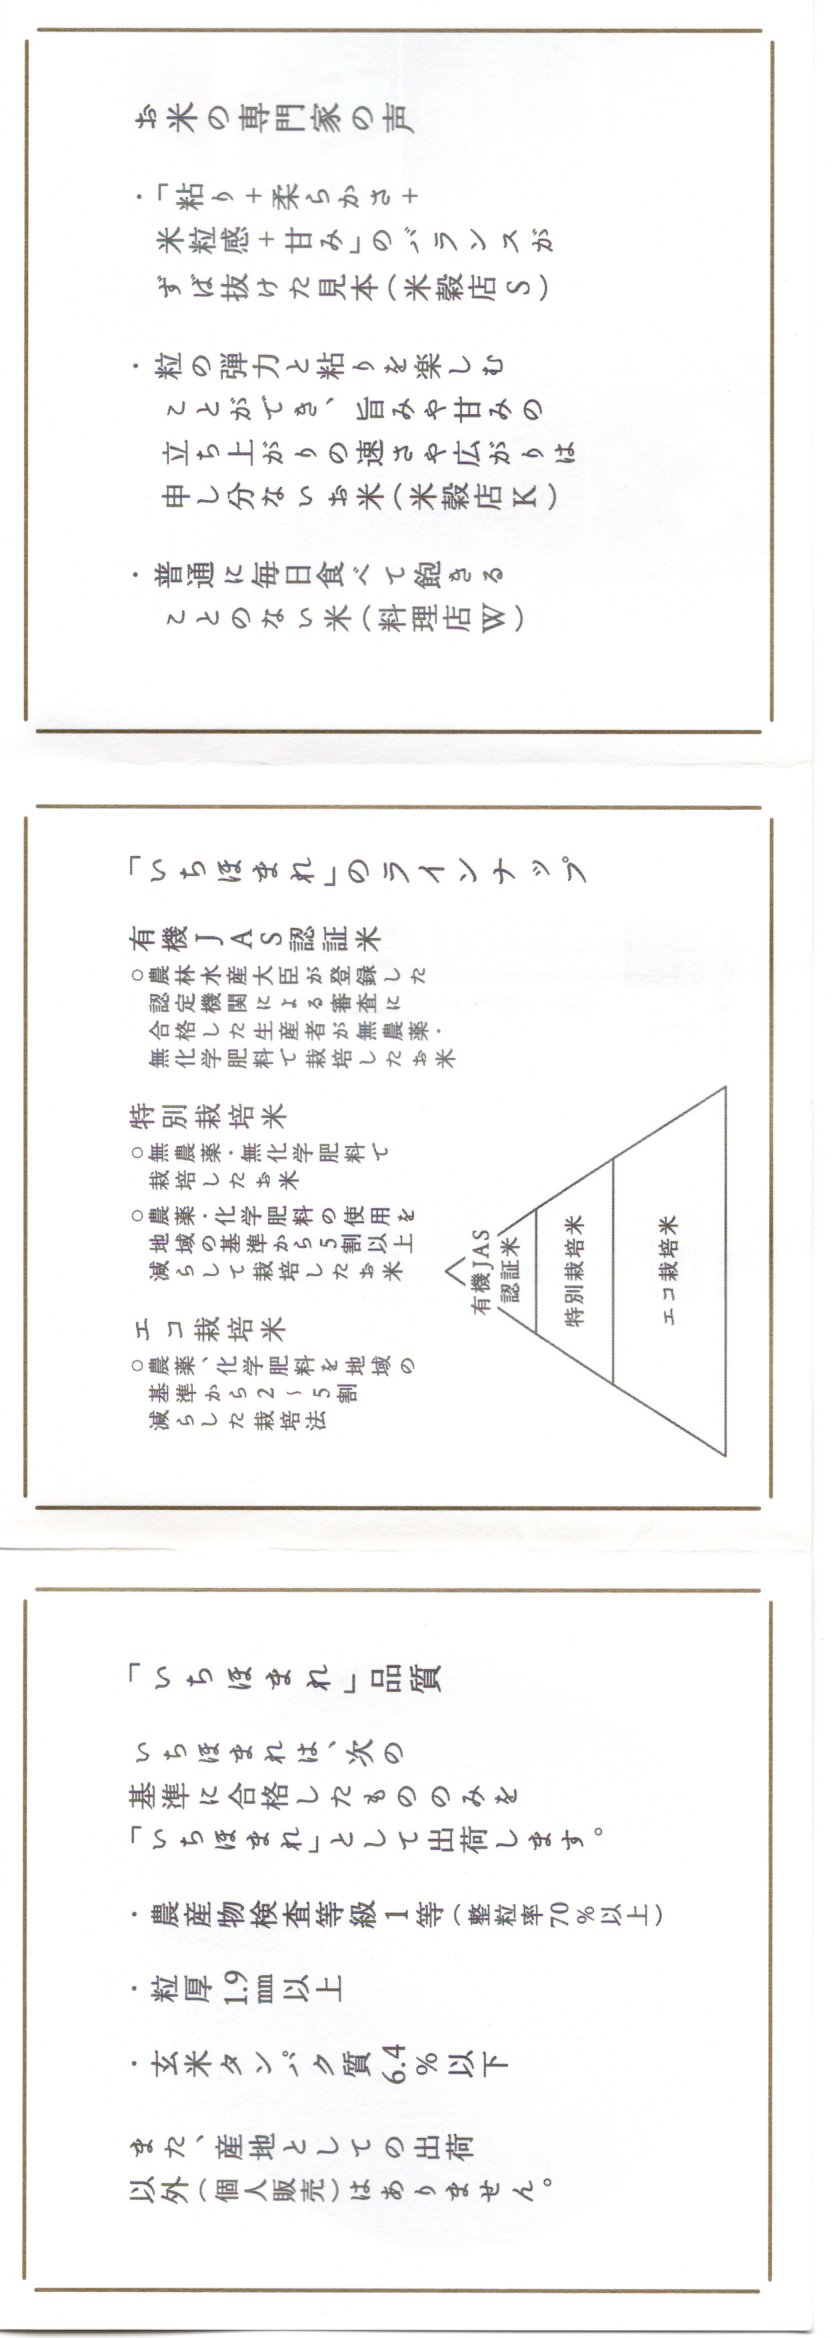 お米の専門家の声
・「粘り＋柔らかさ＋
米粒感＋甘み」のバランスが
ずば抜けた見本（米穀店Ｓ）
・粒の弾力と粘りを楽しむ
ことができ、旨みや甘みの
立ち上がりの速さや広がりは
申し分ないお米（米穀店Ｋ）
・普通に毎日食べて飽きる
ことのない米（料理店Ｗ）
「いちほまれ」のラインナップ
有機ＪＡＳ認証米
○農林水産大臣が登録した
認定機関による審査に
合格した生産者が無農薬・
無化学肥料で栽培したお米
特別栽培米
○無農薬・無化学肥料で
栽培したお米
○農薬・化学肥料の使用を
地域の基準から５割以上
減らして栽培したお米
エコ栽培米
○農薬、化学肥料を地域の
基準から２～５割
減らした栽培法
有機JAS
認証米
特別栽培米
エコ栽培米
「いちほまれ」品質
いちほまれは、次の
基準に合格したもののみを
「いちほまれ」として出荷します。
・農産物検査等級１等（整粒率70％以上）
・粒厚1.9㎜以上
・玄米タンパク質6.4％以下
また、産地としての出荷
以外（個人販売）はありません。